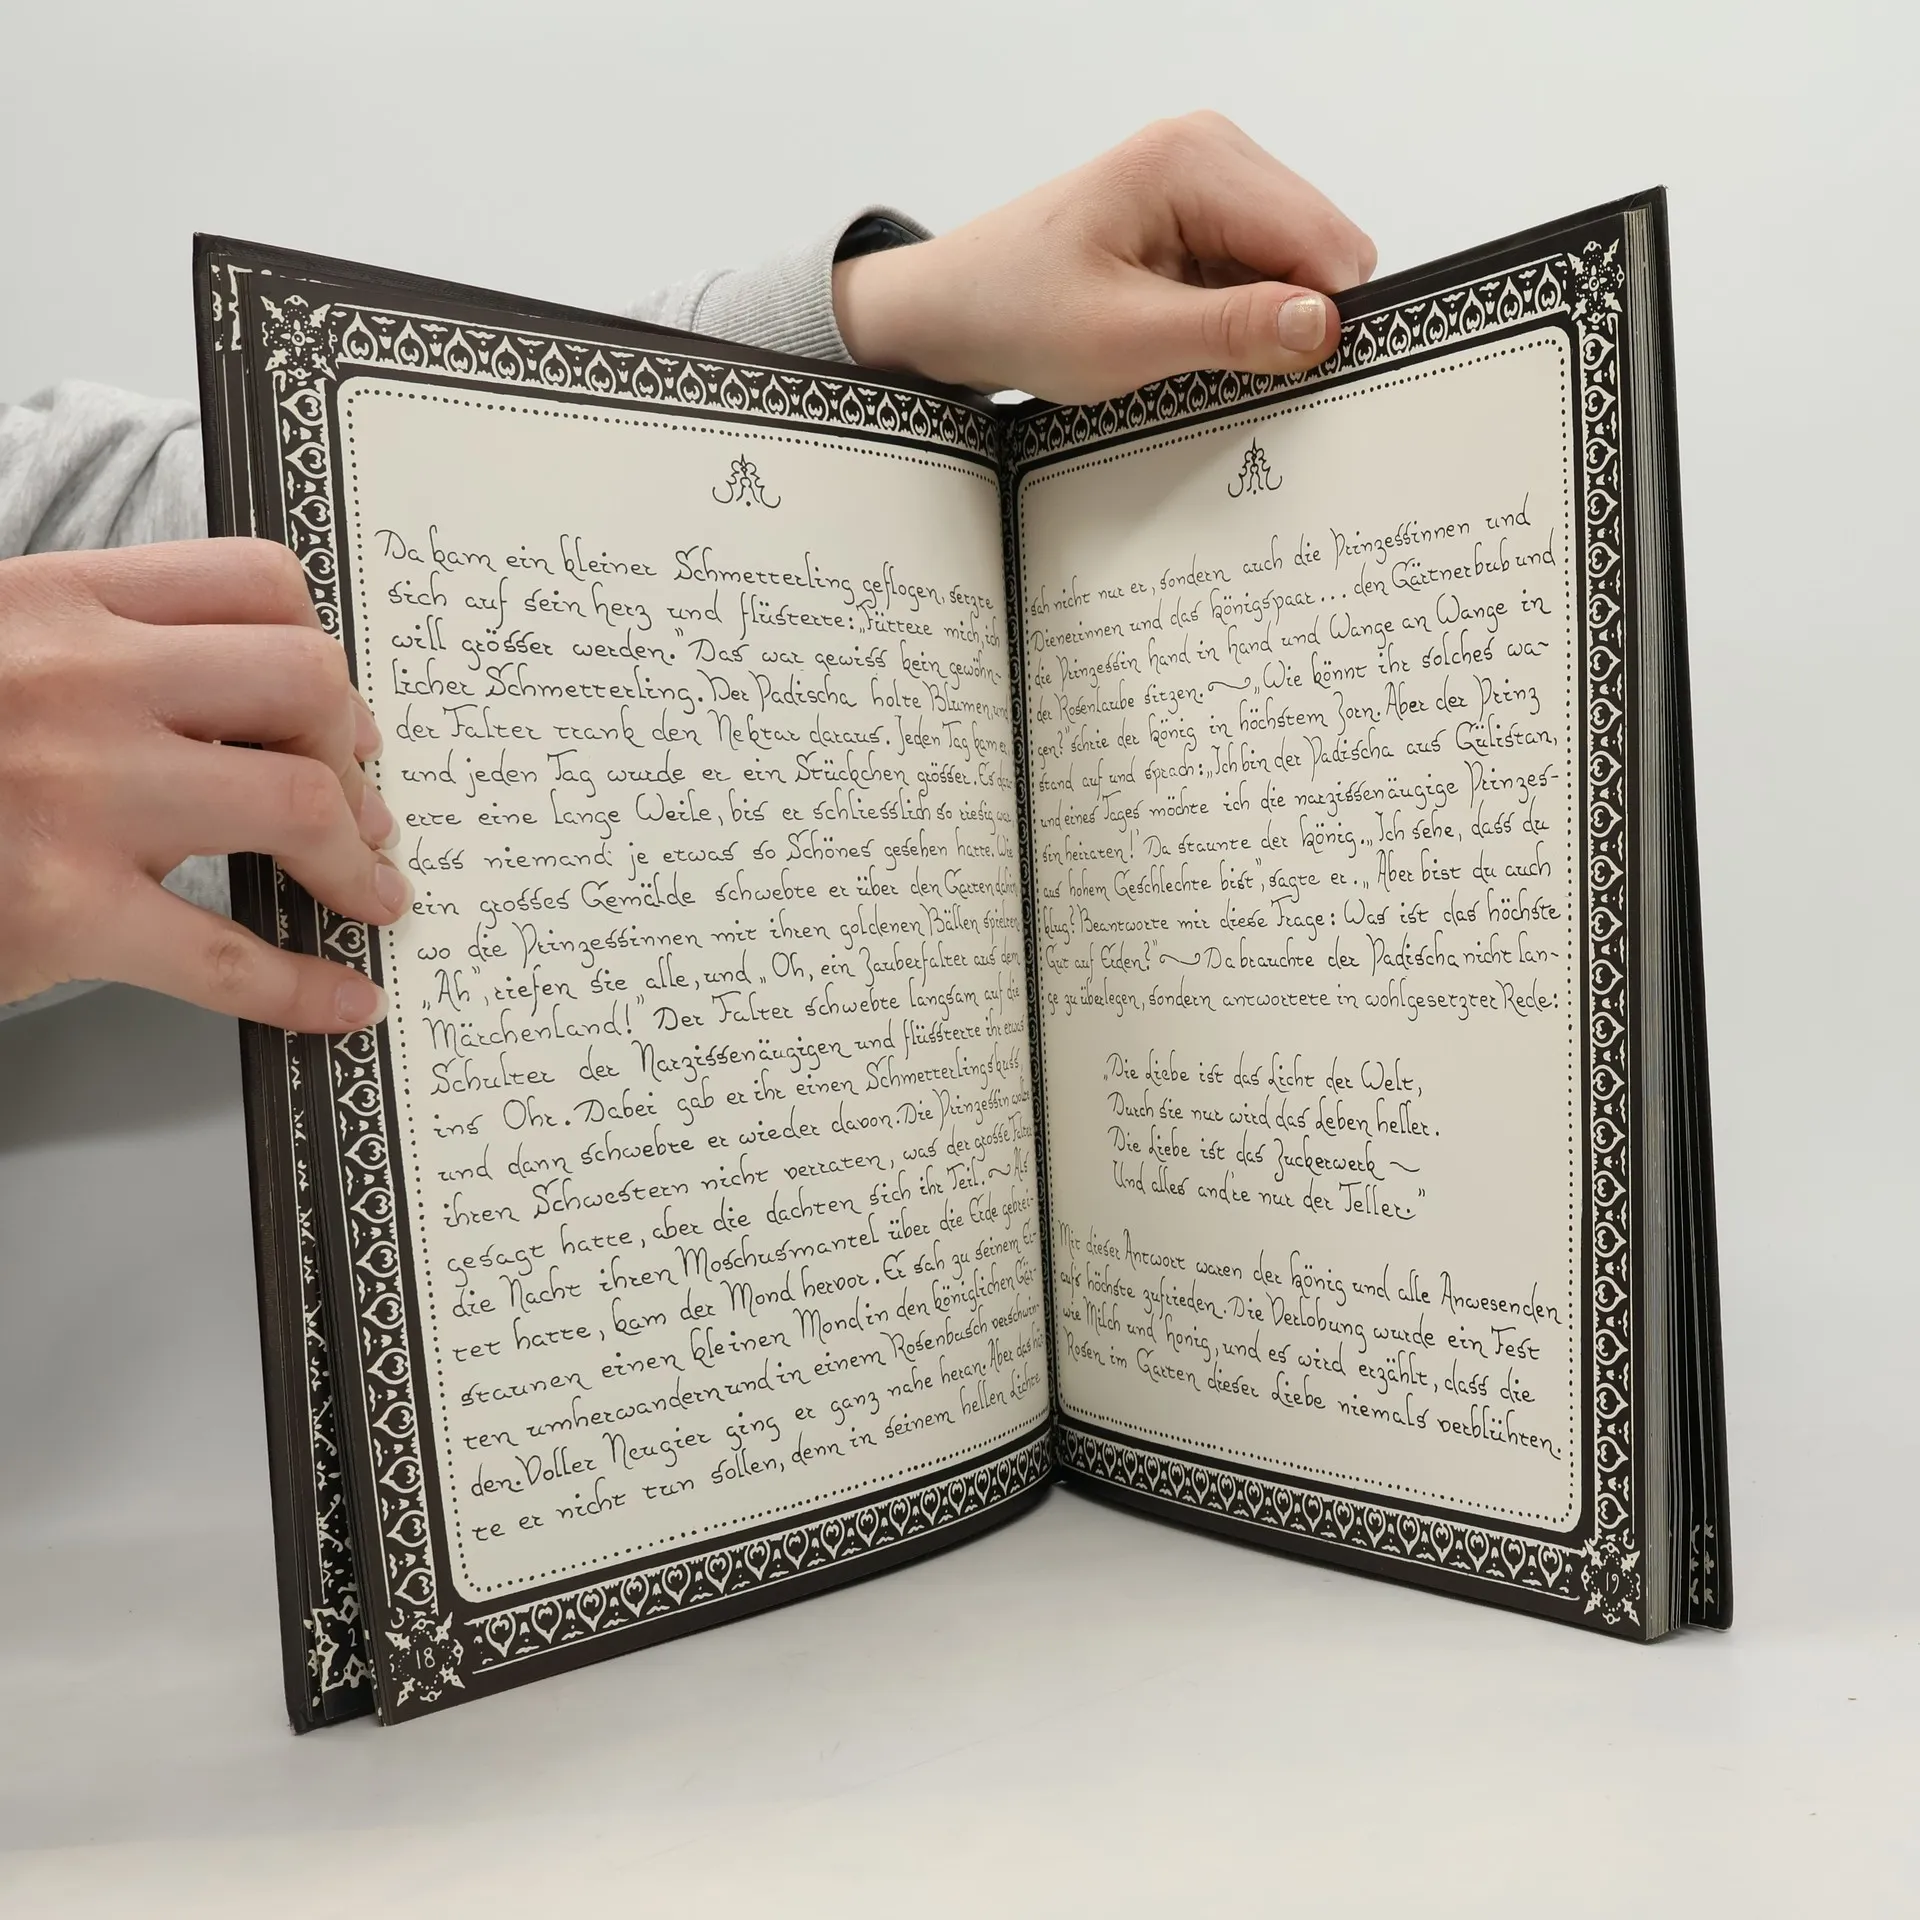 Da kam ein kleiner Schmetterling geflogen, setzte
sich auf sein herz und flüsterte: „Füttere mich, ich
will grösser werden.” Das war gewiss kein gewöhn-
licher Schmetterling. Der Padischa holte Blumen, und
der Falter trank den Nektar daraus. Jeden Tag kam er,
und jeden Tag wurde er ein Stückchen grösser. Es dau-
erte eine lange Weile, bis er schliesslich so riesig war,
dass niemand je etwas so Schönes gesehen hatte. Wie
ein grosses Gemälde schwebte er über den Garten dahin,
wo die Prinzessinnen mit ihren goldenen Bällen spielten.
„Ah”, riefen sie alle, und „Oh, ein Zauberfalter aus dem
Märchenland!” Der Falter schwebte langsam auf die
Schulter der Narzissenäugigen und flüssterte ihr etwas
ins Ohr. Dabei gab er ihr einen Schmetterlingskuss,
und dann schwebte er wieder davon. Die Prinzessin wollte
ihren Schwestern nicht verraten, was der grosse Falter
gesagt hatte, aber die dachten sich ihr Teil. ~ Als
die Nacht ihren Moschusmantel über die Erde gebrei-
tet hatte, kam der Mond hervor. Er sah zu seinem Er-
staunen einen kleinen Mond in den königlichen Gär-
ten umherwandern und in einem Rosenbusch verschwin-
den. Voller Neugier ging er ganz nahe heran. Aber das hät-
te er nicht tun sollen, denn in seinem hellen Lichte
18
sah nicht nur er, sondern auch die Prinzessinnen und
Dienerinnen und das königspaar... den Gärtnerbub und
die Prinzessin hand in hand und Wange an Wange in
der Rosenlaube sitzen. ~ „Wie könnt ihr solches wa-
gen?” schrie der könig in höchstem Zorn. Aber der Prinz
stand auf und sprach: „Ich bin der Padischa aus Gülistan,
und eines Tages möchte ich die narzissenäugige Prinzes-
sin heiraten! Da staunte der könig. „Ich sehe, dass du
aus hohem Geschlechte bist”, sagte er. „Aber bist du auch
klug? Beantworte mir diese Frage: Was ist das höchste
Gut auf Erden?” ~ Da brauchte der Padischa nicht lan-
ge zu überlegen, sondern antwortete in wohlgesetzter Rede:
„Die Liebe ist das Licht der Welt,
Durch sie nur wird das Leben heller.
Die Liebe ist das Zuckerwerk ~
Und alles and're nur der Teller.”
Mit dieser Antwort waren der könig und alle Anwesenden
aufs höchste zufrieden. Die Verlobung wurde ein Fest
wie Milch und honig, und es wird erzählt, dass die
Rosen im Garten dieser Liebe niemals verblühten.
19